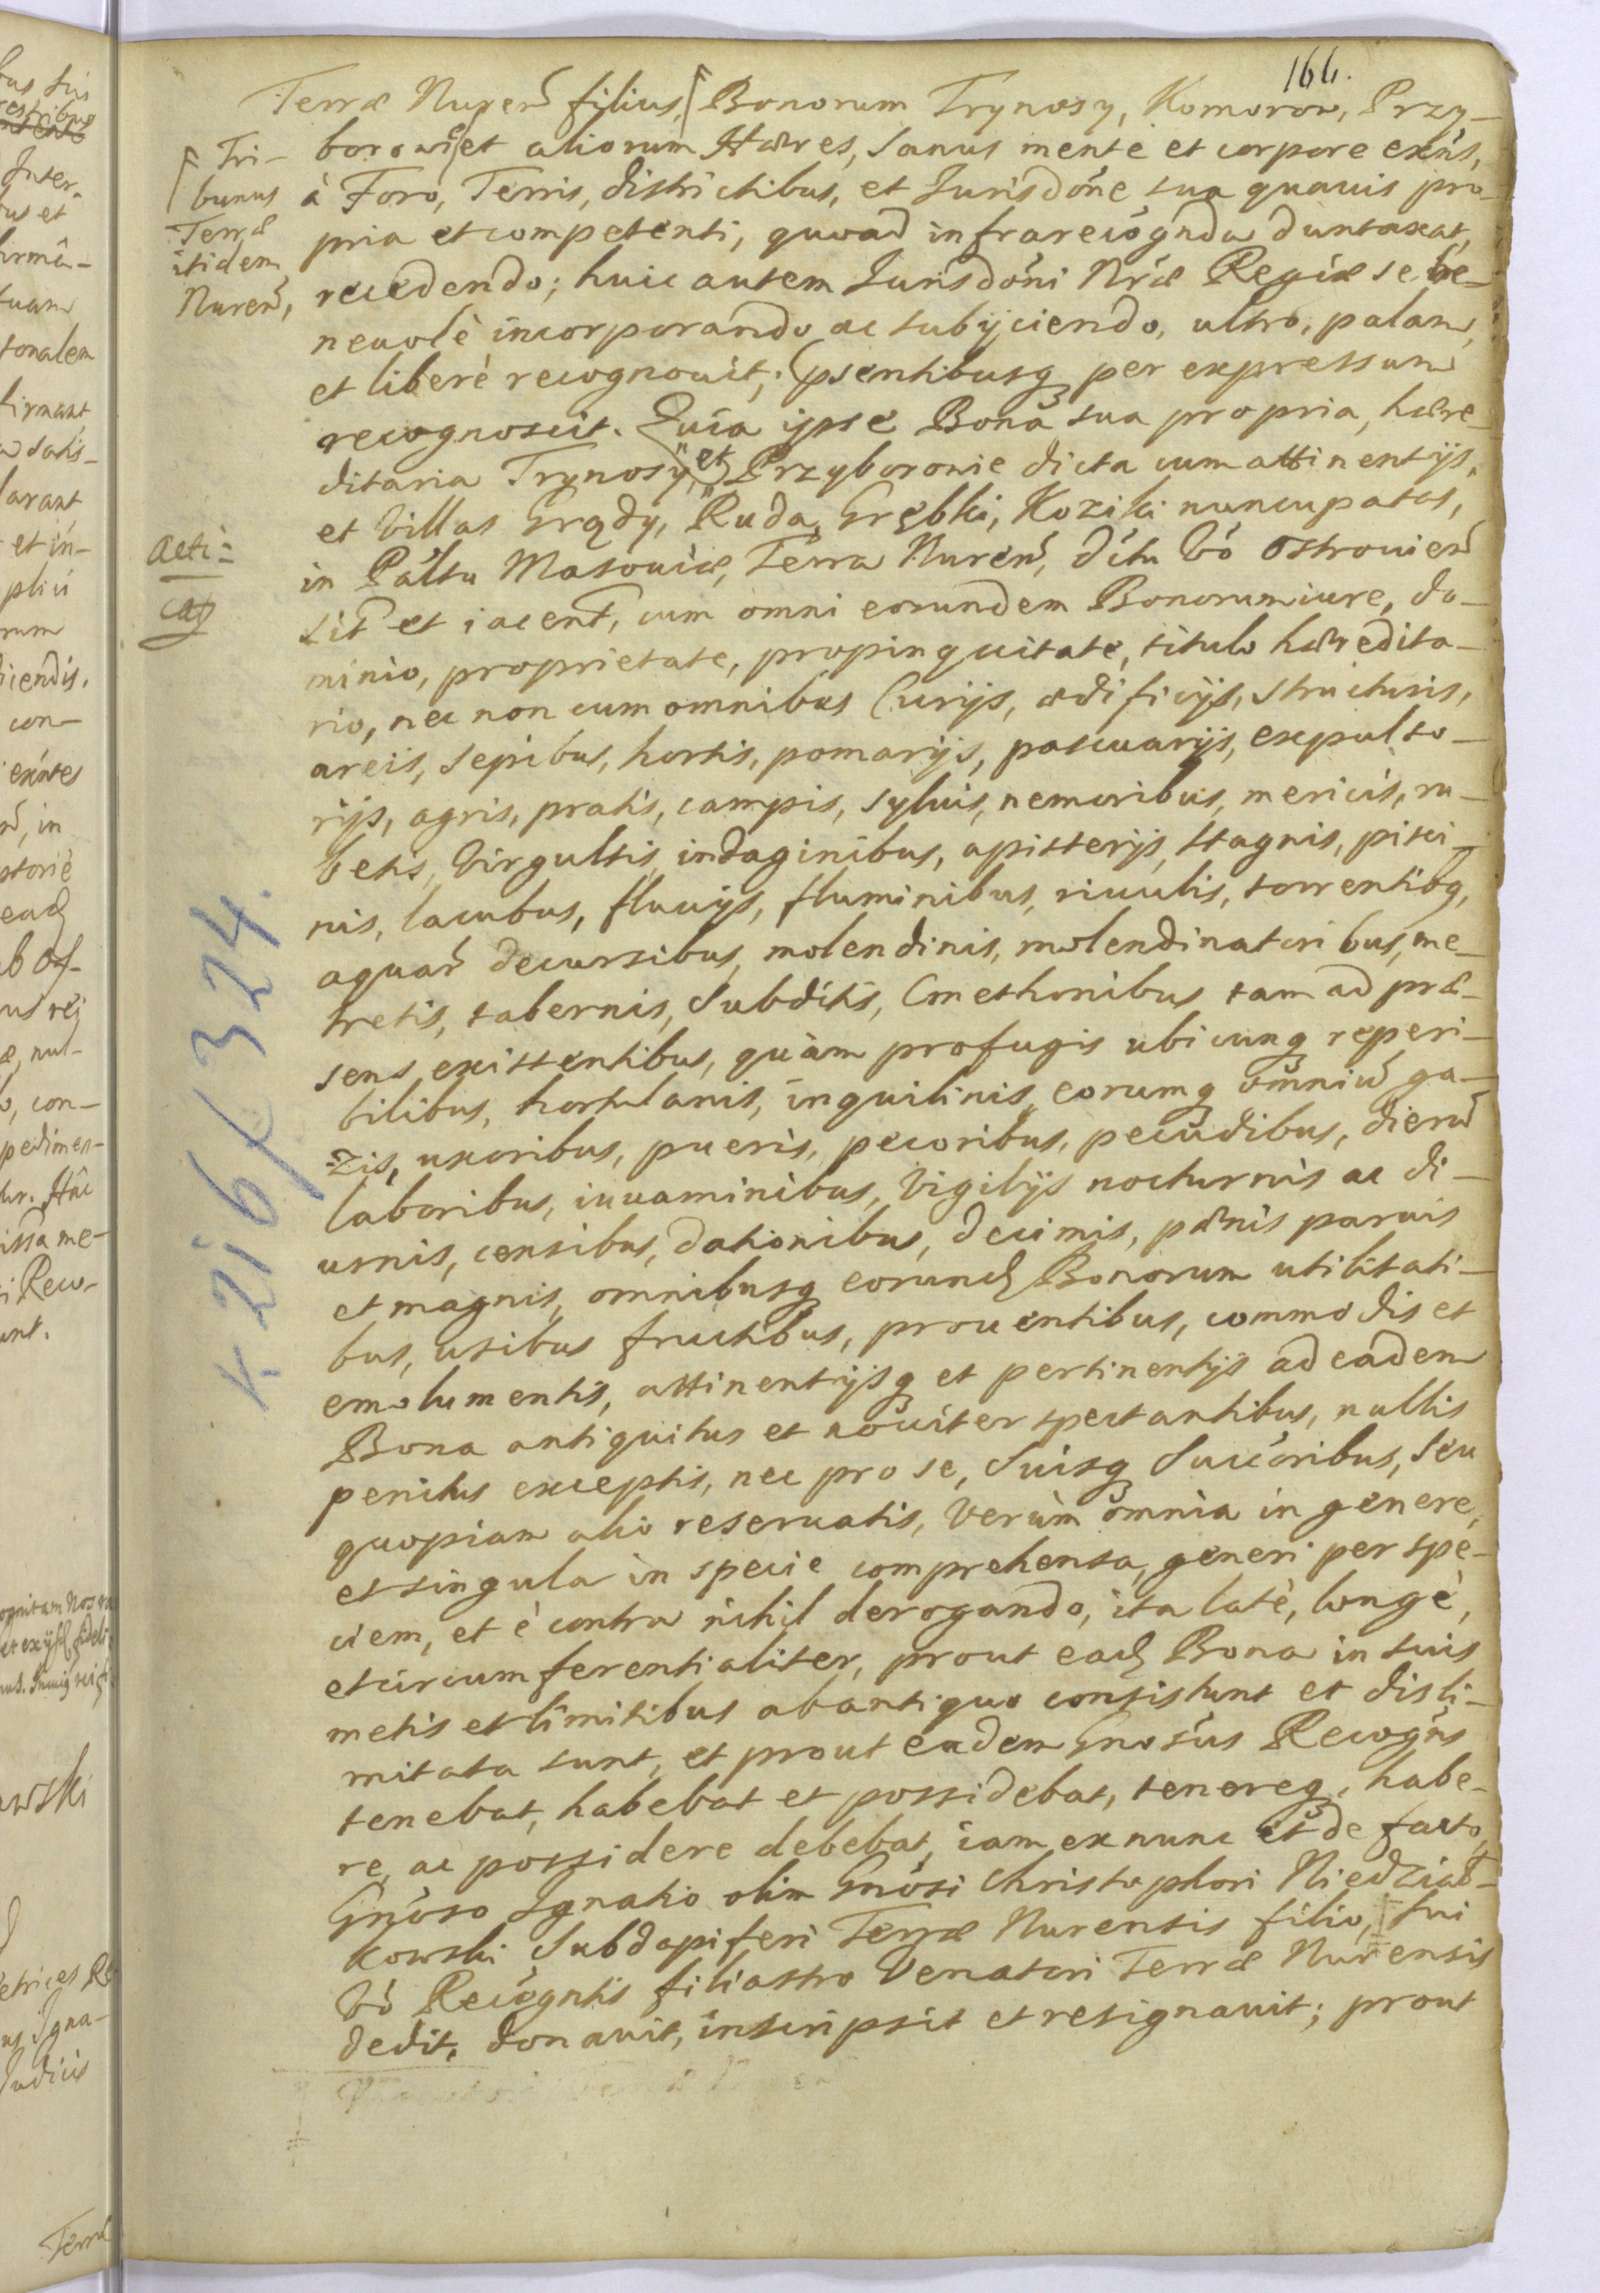 166.
Terræ Nureñ filius, Bonorum Trynosy, Komorow, Przy-
borowie et aliorum Hæres, sanus mente et corpore exñs,
à Foro, Terris, districtibus, et Jurisdóne sua quavis pro-
pria et competenti, quoad infrarecógnda duntaxat,
recedendo; huic autem Jurisdóni Nræ Regiæ se be-
nevolè incorporando ac subÿciendo, ultro, palam,
et liberè recognovit; psentibusq per expressum
recognoscit. Quia ipse Bona sua propria, hære-
ditaria Trynosÿ, et Przyborowie dicta cum attinentÿs,
et Villas Grądy, Ruda, Grębki, Koziki nuncupatas,
in Páltu Masoviæ, Terra Nureñ, díctu Vó Ostrovieñ
sit et iaceñt, cum omni eorundem Bonorum iure, do-
minio, proprietate, propinquitate, titulo hæredita-
rio, nec non cum omnibus Curÿs, ædificÿs, structuris,
areis, sepibus, hortis, pomarÿs, pascuarÿs, expulso-
rÿs, agris, pratis, campis, sylvis, nemoribus, mericis, ru-
betis, Virgultis, indaginibus, apisterÿs, stagnis, pisci-
nis, lacubus, fluvÿs, fluminibus, rivulis, torrentibq,
aquar̃ decursibus, molendinis, molendinatoribus, me-
tretis, tabernis, Subditis, Cmethonibus tam ad præ-
sens existentibus, quàm profugis ubicunq reperi-
bilibus, hortulanis, inquilinis, eorumq omniũ ga-
zis, uxoribus, pueris, pecoribus, pecudibus, dierũ
laboribus, iuvaminibus, Vigilÿs nocturnis ac di-
urnis, censibus, dationibus, decimis, pœnis parvis
et magnis, omnibusq eorund Bonorum utilitati-
bus, usibus fructibus, proventibus, commodis et
emolumentis, attinentÿsq et pertinentÿs ad eadem
Bona antiquitus et noviter spectantibus, nullis
penitus exceptis, nec pro se, Suisq Succóribus, seu
quopiam alio reservatis, Verùm omnia in genere,
et singula in specie comprehensa, generi per spe-
ciem, et è contra nihil derogando, ita latè, longè,
et circumferentialiter, prout ead Bona in suis
metis et limitibus ab antiquo consistunt et disli-
mitata sunt, et prout eadem Gnosus Recogñs
tenebat, habebat et possidebat, tenereq, habe-
re, ac possidere debebat, iam ex nunc et de facto,
Gnoso Ignatio olim Gnosi Christophori Niedział-
kowski Subdapiferi Terræ Nurensis filio, sui
Vó Recógntis filiastro Venatori Terræ Nurensis
dedit, donavit, inscripsit et resignavit; prout
Tri-
bunus
Terræ
itidem
Nureñ,
Acti-
cat
K 216/324.